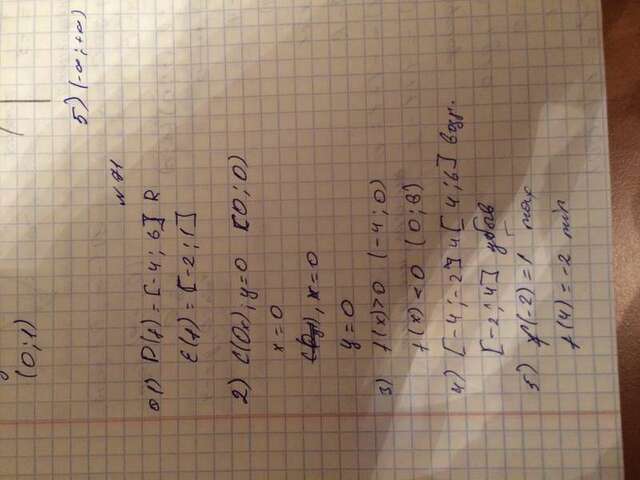 (0;1)
5) (-∞;+∞)
№71
1) D(f)=[-4;6] R
E(f)=[-2;1]
2) С(Ox); y=0 (0;0)
x=0
x=0
y=0
3) f(x)>0 (-4;0)
f(x)<0 (0;6)
4) [-4;-2] и [4;6] возр.
[-2;4] убыв
5) f(-2)=1 max
f(4)=-2 min